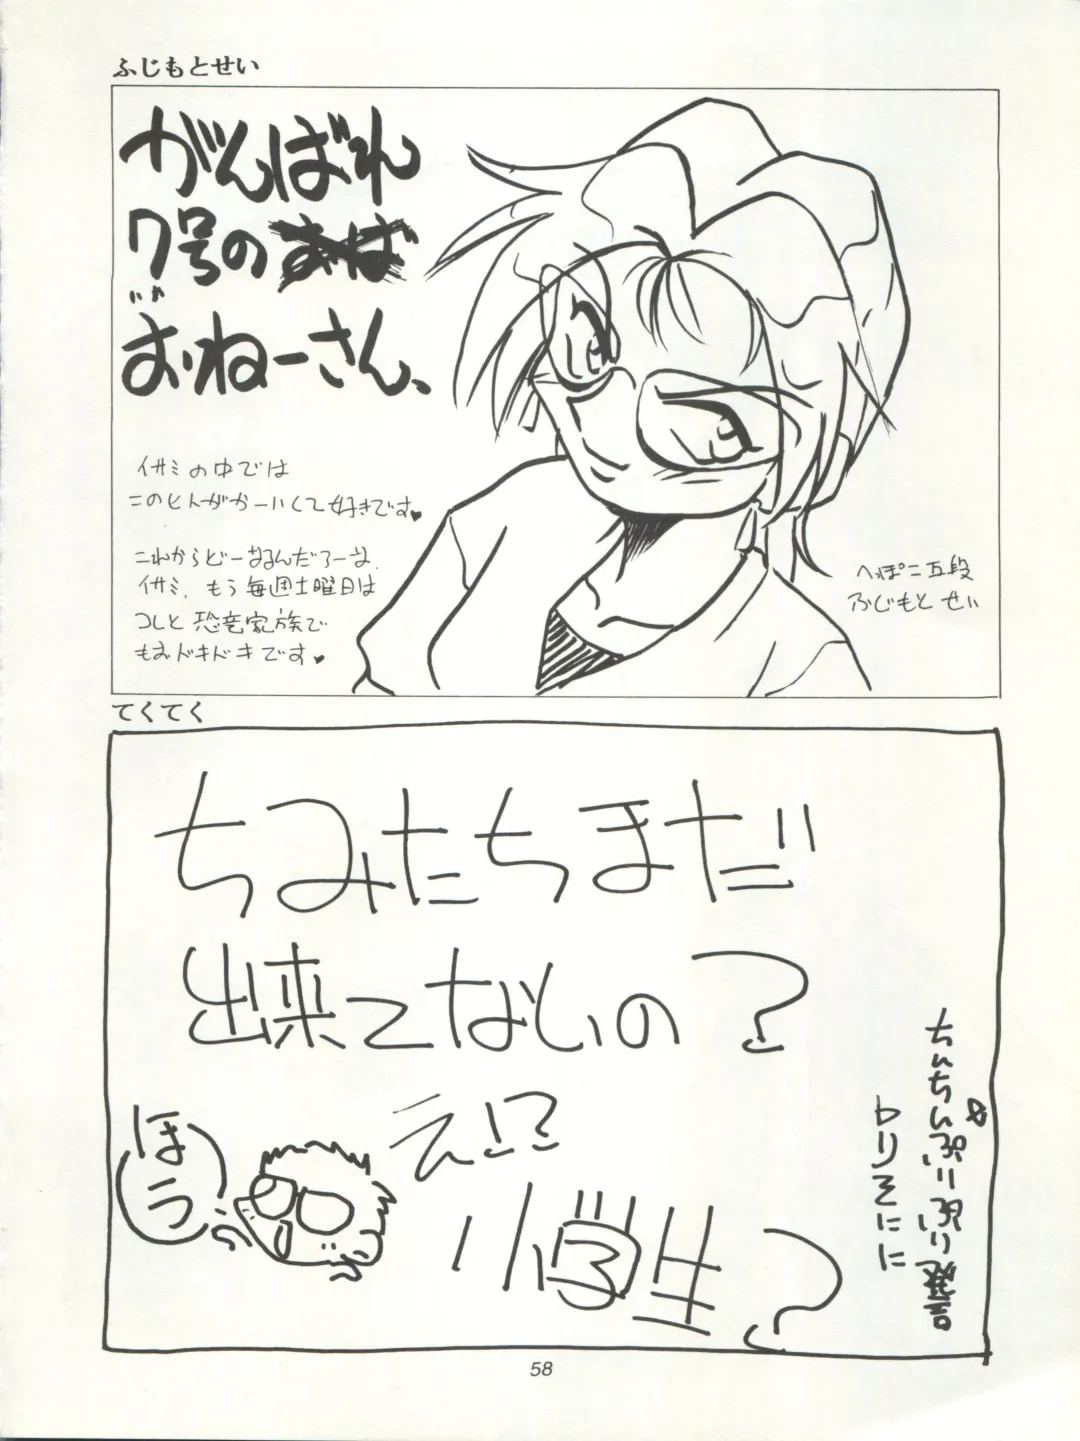 ふじもとせい
がんばれ
7号の おば
じゃ
おねーさん、
イサミの中では
このヒトがかーいくて好きです♥
これからどーなるんだろーな
イサミ. もう毎週土曜日は
コレと恐竜家族で
もおドキドキです♥
へっぽこ五段
ふじもと せい
てくてく
ちみたちまだ
出来てないの?
え!?
ほう
小学生?